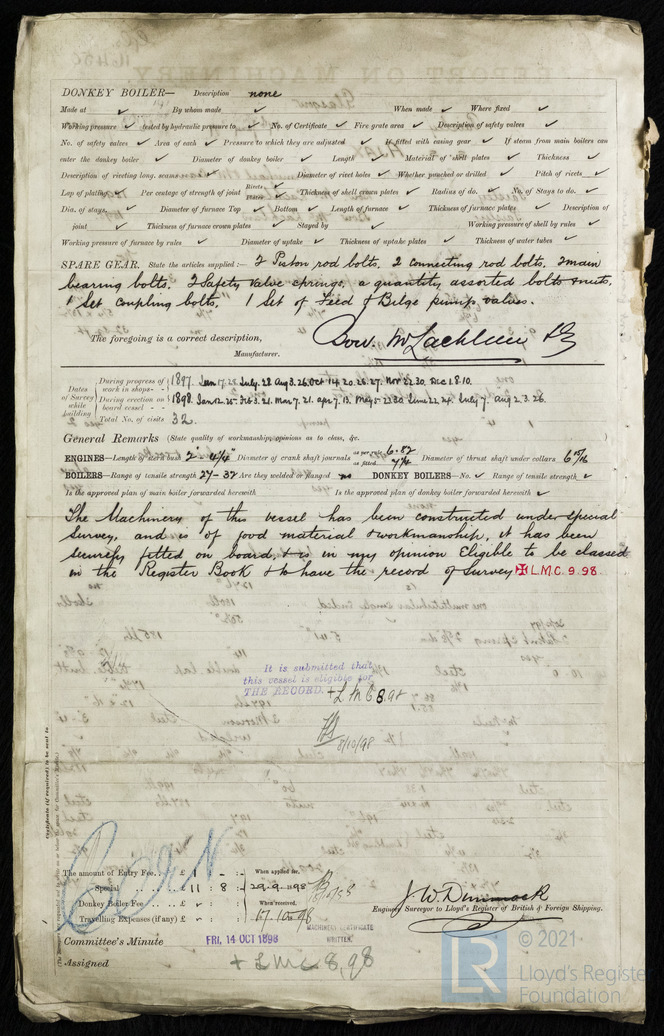 DONKEY BOILER— Description none
Made at ✓ By whom made ✓ When made ✓ Where fixed ✓
Working pressure ✓ tested by hydraulic pressure to ✓ No. of Certificate ✓ Fire grate area ✓ Description of safety valves ✓
No. of safety valves ✓ Area of each ✓ Pressure to which they are adjusted ✓ If fitted with easing gear ✓ If steam from main boilers can
enter the donkey boiler ✓ Diameter of donkey boiler ✓ Length ✓ Material of shell plates ✓ Thickness ✓
Description of riveting long. seams ✓ Diameter of rivet holes ✓ Whether punched or drilled ✓ Pitch of rivets ✓
Lap of plating ✓ Per centage of strength of joint Rivets ✓ Plates ✓ Thickness of shell crown plates ✓ Radius of do. ✓ No. of Stays to do. ✓
Dia. of stays. ✓ Diameter of furnace Top ✓ Bottom ✓ Length of furnace ✓ Thickness of furnace plates ✓ Description of
joint ✓ Thickness of furnace crown plates ✓ Stayed by ✓ Working pressure of shell by rules ✓
Working pressure of furnace by rules ✓ Diameter of uptake ✓ Thickness of uptake plates ✓ Thickness of water tubes ✓
SPARE GEAR. State the articles supplied :— 2 Piston rod bolts. 2 connecting rod bolts. 2 main
bearing bolts. 2 Safety valve springs, a quantity assorted bolts & nuts.
1 Set coupling bolts. 1 Set of Feed & Bilge pump valves.
The foregoing is a correct description,
Manufacturer.
Dates of Survey while building
During progress of work in shops - - 1897. Jan 7. 25 July. 28 Aug 3. 26. Oct 14. 20. 26. 27. Nov 22. 30. Dec 1. 8. 10.
During erection on board vessel - - - 1898. Jan 12. 25 Feb 3. 21. Mar 7. 21. apr 7. 13. May 5. 22. 30. June 22. 24. July 7. Aug 2. 3. 26.
Total No. of visits 32.
General Remarks (State quality of workmanship, opinions as to class, &c.
ENGINES—Length of stern bush 2'- 4 1/4" Diameter of crank shaft journals as per rule 6.82 as fitted 7 1/4 Diameter of thrust shaft under collars 6 15/16
BOILERS—Range of tensile strength 27 - 32 Are they welded or flanged no DONKEY BOILERS—No. ✓ Range of tensile strength ✓
Is the approved plan of main boiler forwarded herewith Is the approved plan of donkey boiler forwarded herewith ✓
The Machinery of this vessel has been constructed under special
Survey, and is of good material & workmanship, it has been
securely fitted on board, & is in my opinion Eligible to be classed
in the Register Book & to have the record of Survey ✠ L.M.C. 9.98.
It is submitted that
this vessel is eligible for
THE RECORD. + L M C 8.98
8/10/98
Certificate (if required) to be sent to
The amount of Entry Fee. . £ 1 : - : When applied for,
Special . . £ 11 : 8 : 29.9.1898
Donkey Boiler Fee . . £ ✓ : : When received,
Travelling Expenses (if any) £ ✓ : : 17.10.98
J. W. Dimmock
Engineer Surveyor to Lloyd's Register of British & Foreign Shipping.
MACHINERY CERTIFICATE
WRITTEN.
Committee's Minute FRI. 14 OCT 1898
Assigned + L M C 8,98
© 2021
LR
Lloyd's Register
Foundation